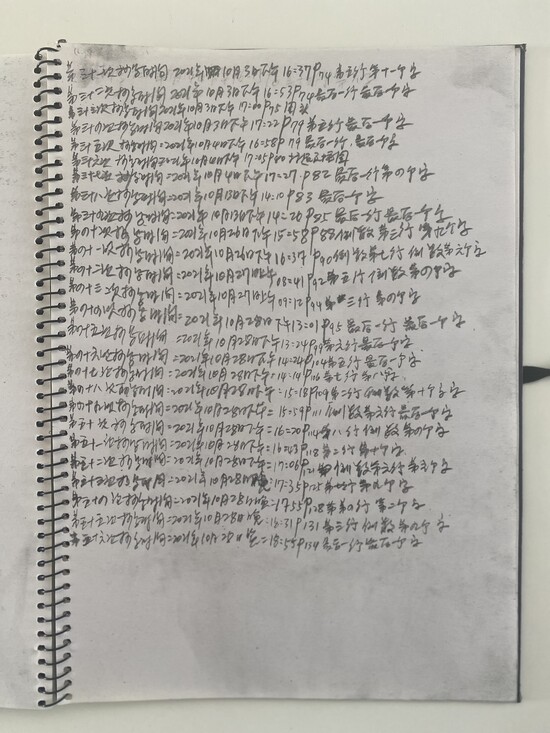 第三十一次抄写时间 2021年10月3日下午 16:37 P74 第三行第十一个字
第三十二次抄写时间 2021年10月3日下午 16:53 P74 最后一行最后一个字
第三十三次抄写时间2021年10月3日下午 17:00 P75 图文
第三十四次抄写时间2021年10月3日下午 17:22 P79 第五行最后一个字
第三十五次抄写时间=2021年10月4日下午 16:58 P79 最后一行,最后一个字
第三十六次抄写时间=2021年10月4日下午 17:05 P80
第三十七次抄写时间=2021年10月4日下午 17:27 P82 最后一行第四个字
第三十八次抄写时间=2021年10月13日下午 14:10 P83 最后一个字
第三十九次抄写时间=2021年10月13日下午 14:20 P85 最后一行最后一个字
第四十次抄写时间=2021年10月26日下午 15:58 P88 倒数第三行第九个字
第四十一次抄写时间=2021年10月26日下午 16:37 P90 倒数第七行倒数第六个字
第四十二次抄写时间=2021年10月27日上午 08:41 P92 第五行倒数第四个字
第四十三次抄写时间=2021年10月27日上午 09:12 P94 第三行第四个字
第四十四次抄写时间=2021年10月28日下午13:01 P95 最后一行最后一个字
第四十五次抄写时间=2021年10月28日下午:13:24 P99 第六行最后一个字
第四十六次抄写时间=2021年10月28日下午:14:24 P104 第五行最后一个字
第四十七次抄写时间=2021年10月28日下午:14:14 P106 第七行第八个字
第四十八次抄写时间=2021年10月28日下午:15:18 P109 第二行倒数第十个字
第四十九次抄写时间=2021年10月28日下午:15:59 P111 倒数第六行最后一个字
第五十次抄写时间=2021年10月28日下午:16:20 P114 第八行倒数第四个字
第五十一次抄写时间=2021年10月28日下午:16:43 P118 第二行第十个字
第五十二次抄写时间=2021年10月28日下午=17:06 P121 倒数第六行第三个字
第五十三次抄写时间=2021年10月28日晚:17:35 P125 第四个字
第五十四次抄写时间=2021年10月28日晚=17:55 P128 第四行第二个字
第五十五次抄写时间=2021年10月28日晚:16:31 P131 第三行倒数第九个字
第五十六次抄写时间=2021年10月28日晚=18:54 P134 最后一行最后一个字